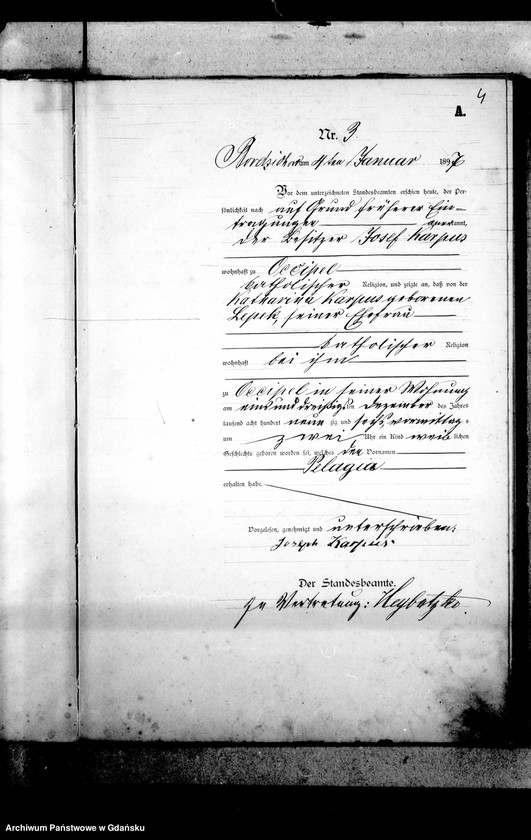 4
A.
Nr. 3
Bordzichow am 4ten Januar 1897
Vor dem unterzeichneten Standesbeamten erschien heute, der Per-
sönlichkeit nach auf Grund früherer Ein-
tragungen anerkannt,
der Besitzer Josef Karpus
wohnhaft zu Occipel
katholischer Religion, und zeigte an, daß von der
Katharina Karpus geborenen
Lepek, seiner Ehefrau
katholischer Religion
wohnhaft bei ihm
zu Occipel in seiner Wohnung
am einunddreißigsten Dezember des Jahres
tausend acht hundert neun zig und sechs vormittags
um zwei Uhr ein Kind weib lichen
Geschlechts geboren worden sei, welches den Vornamen
Pelagia
erhalten habe.
Vorgelesen, genehmigt und unterschrieben.
Joseph Karpus
Der Standesbeamte.
In Vertretung:
Archiwum Państwowe w Gdańsku